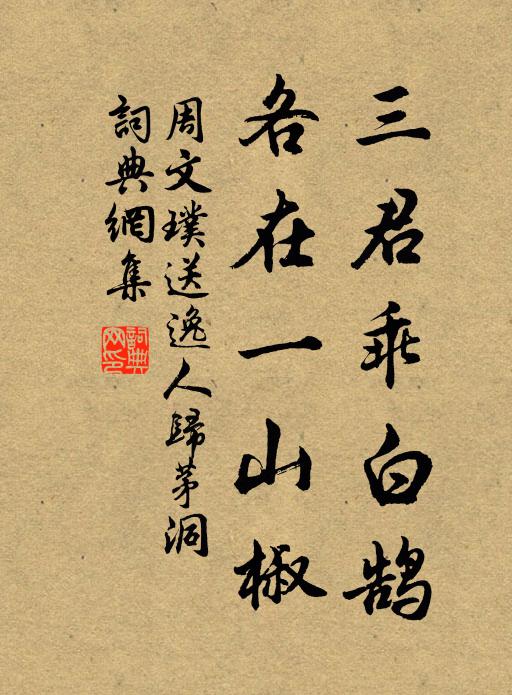 三君乘白鹄
各在一山椒
周文璞送逸人歸茅洞
詞典網集
詞典網印